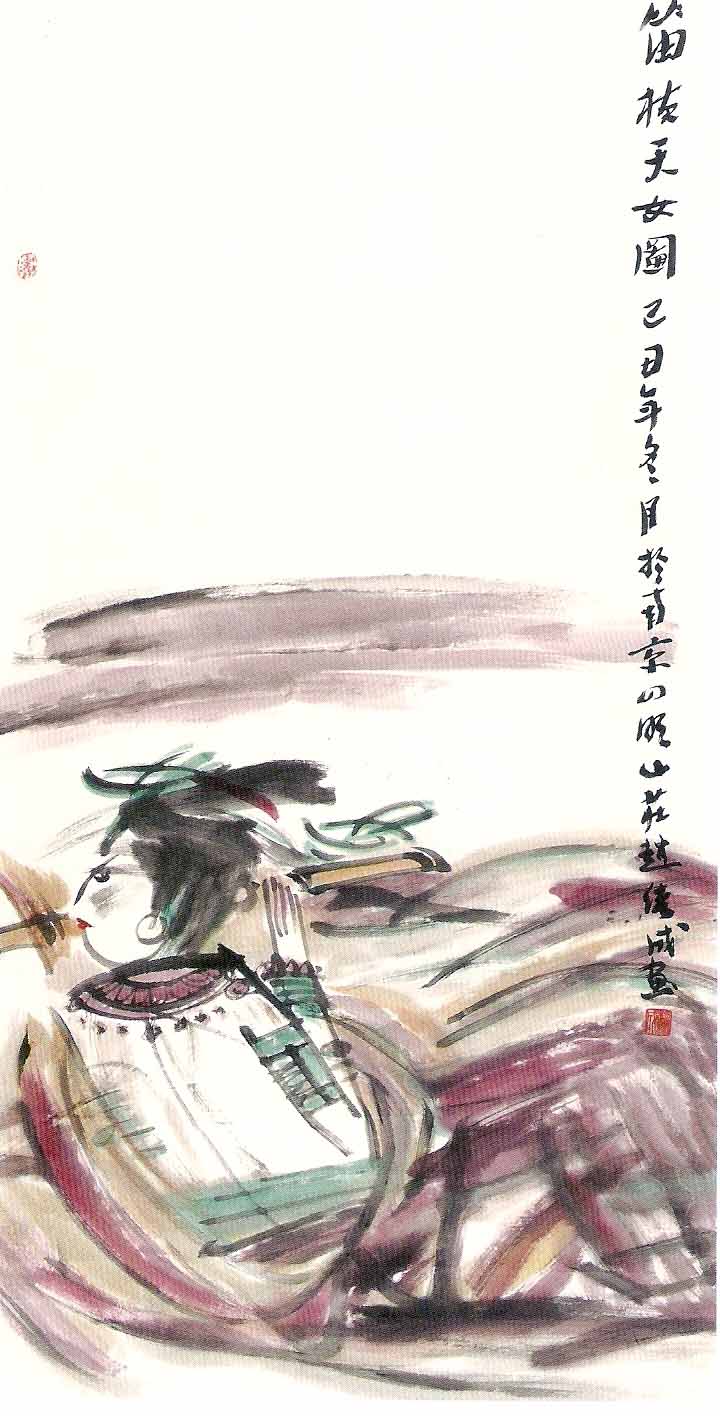 笛枝天女圖己丑年冬月於南京四明山莊趙緒成畫